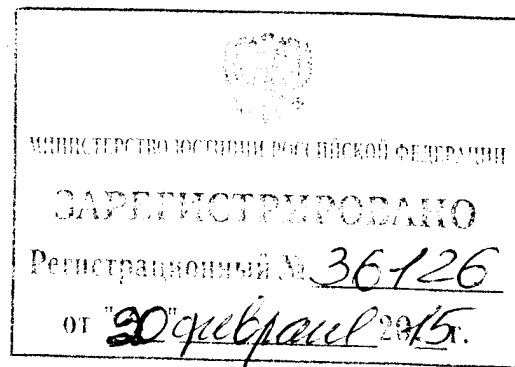 МИНИСТЕРСТВО ЮСТИЦИИ РОССИЙСКОЙ ФЕДЕРАЦИИ
ЗАРЕГИСТРИРОВАНО
Регистрационный № 36126
от "20" февраля 2015г.